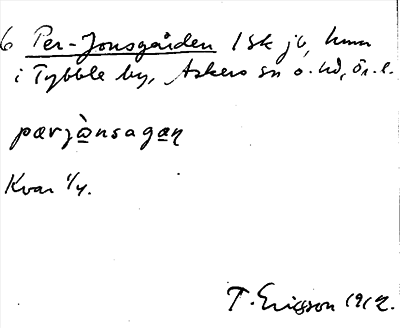 6 Per-Jonsgården 1 sk jb, hmn
i Tybble by, Askers sn o. hd, Ör. l.
pærjònsagaṇ
Kvar 1/4.
T. Ericsson 1912.